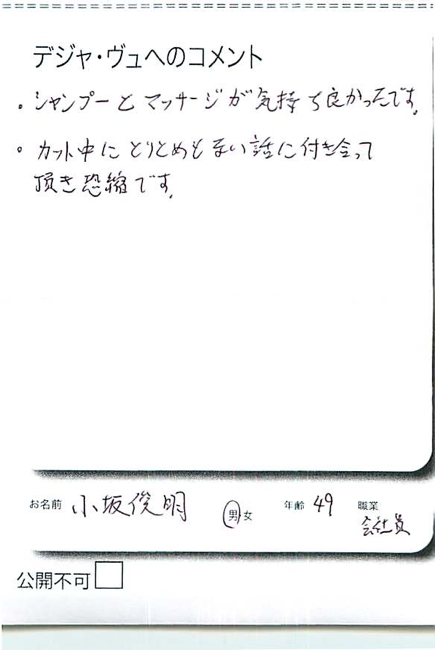 デジャ・ヴュへのコメント
・シャンプーとマッサージが気持ち良かったです。
・カット中にとりとめもない話に付き合って
頂き恐縮です。
お名前 小坂俊明 男女 年齢 49 職業 会社員
公開不可